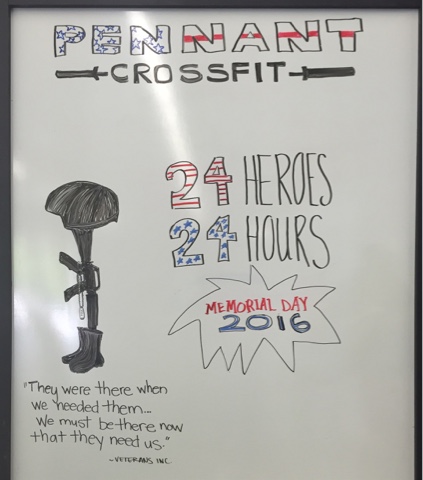 PENNANT
CROSSFIT
24 HEROES
24 HOURS
MEMORIAL DAY
2016
"They were there when
we needed them...
We must be there now
that they need us."
~VETERANS INC.